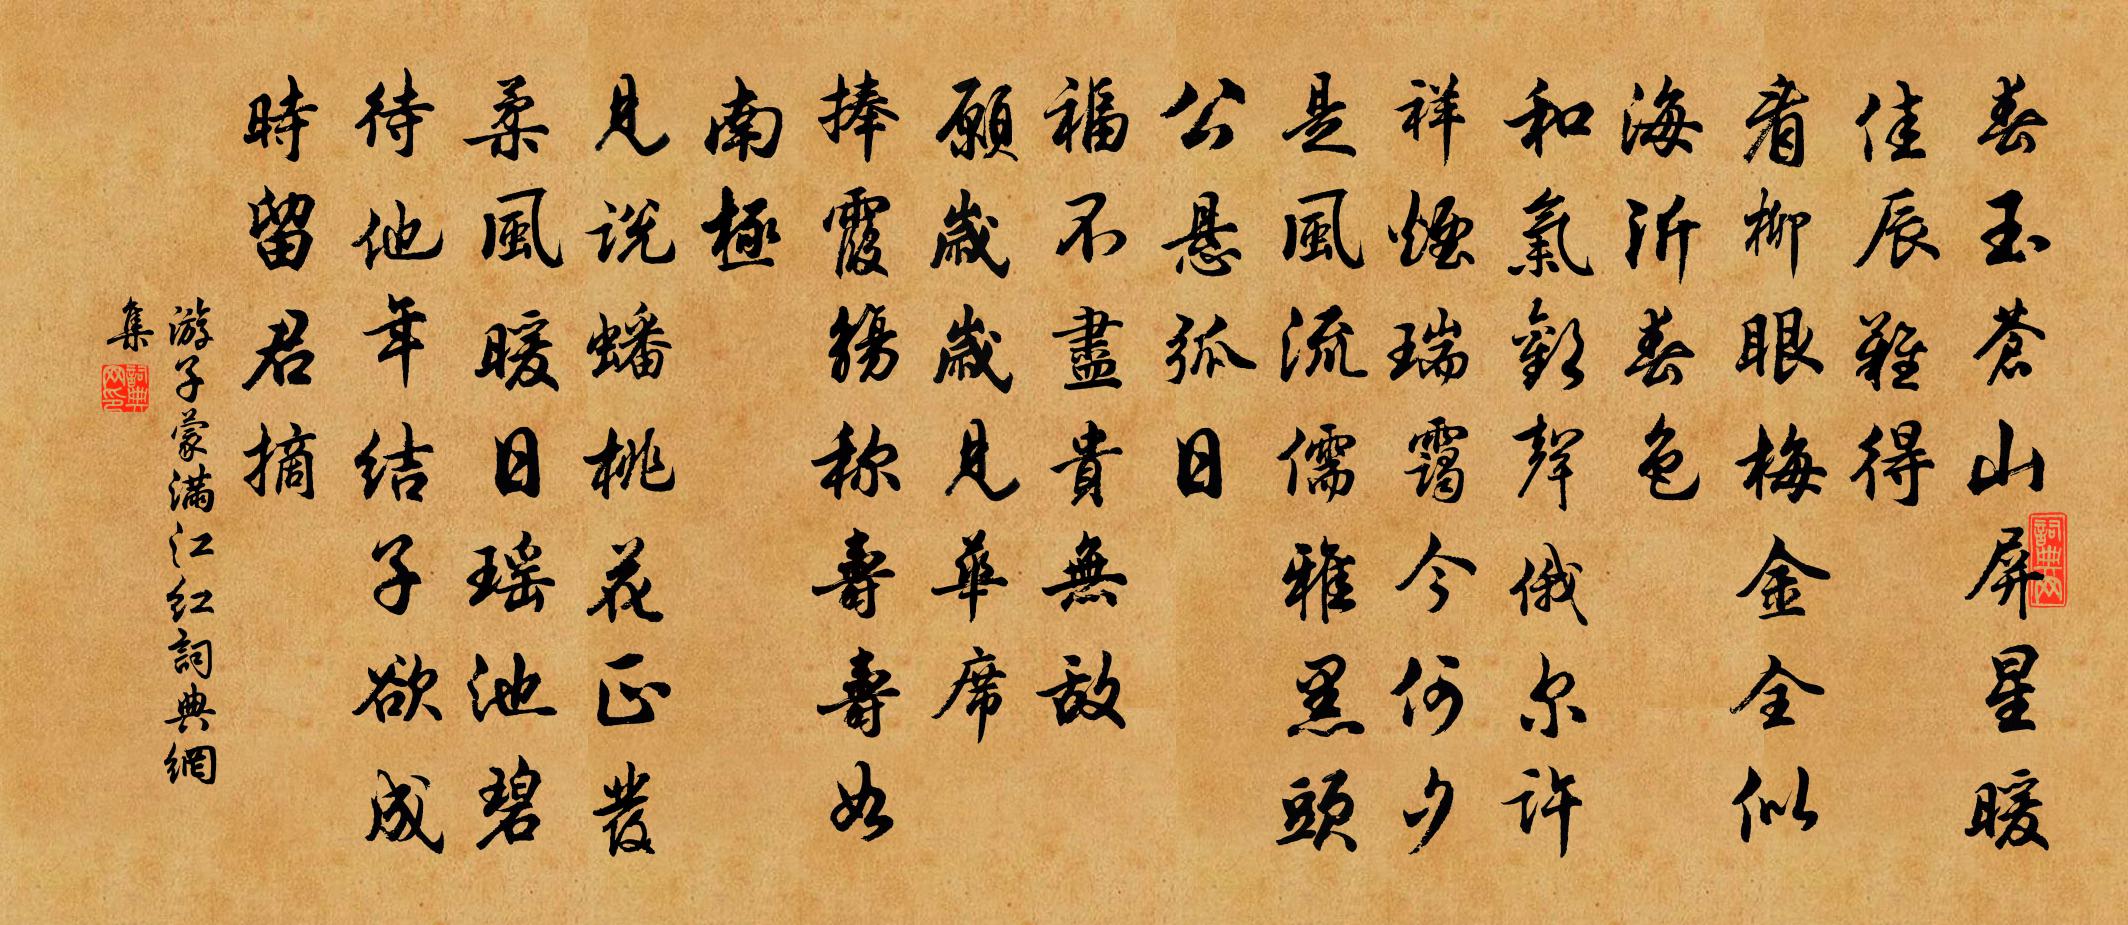 春玉蒼山屏星暖
佳辰難得
看柳眼梅金全似
海沂春色
和氣歡聲俄尔許
祥煙瑞靄今何夕
是風流儒雅黑頭
公懸弧日
福不盡貴無敵
願歲歲見華席
捧霞觴称壽壽如
南極
見說蟠桃花正發
柔風暖日瑶池碧
待他年結子欲成
時留君摘
游子蒙满江红詞典網
集
詞典网
詞典网印